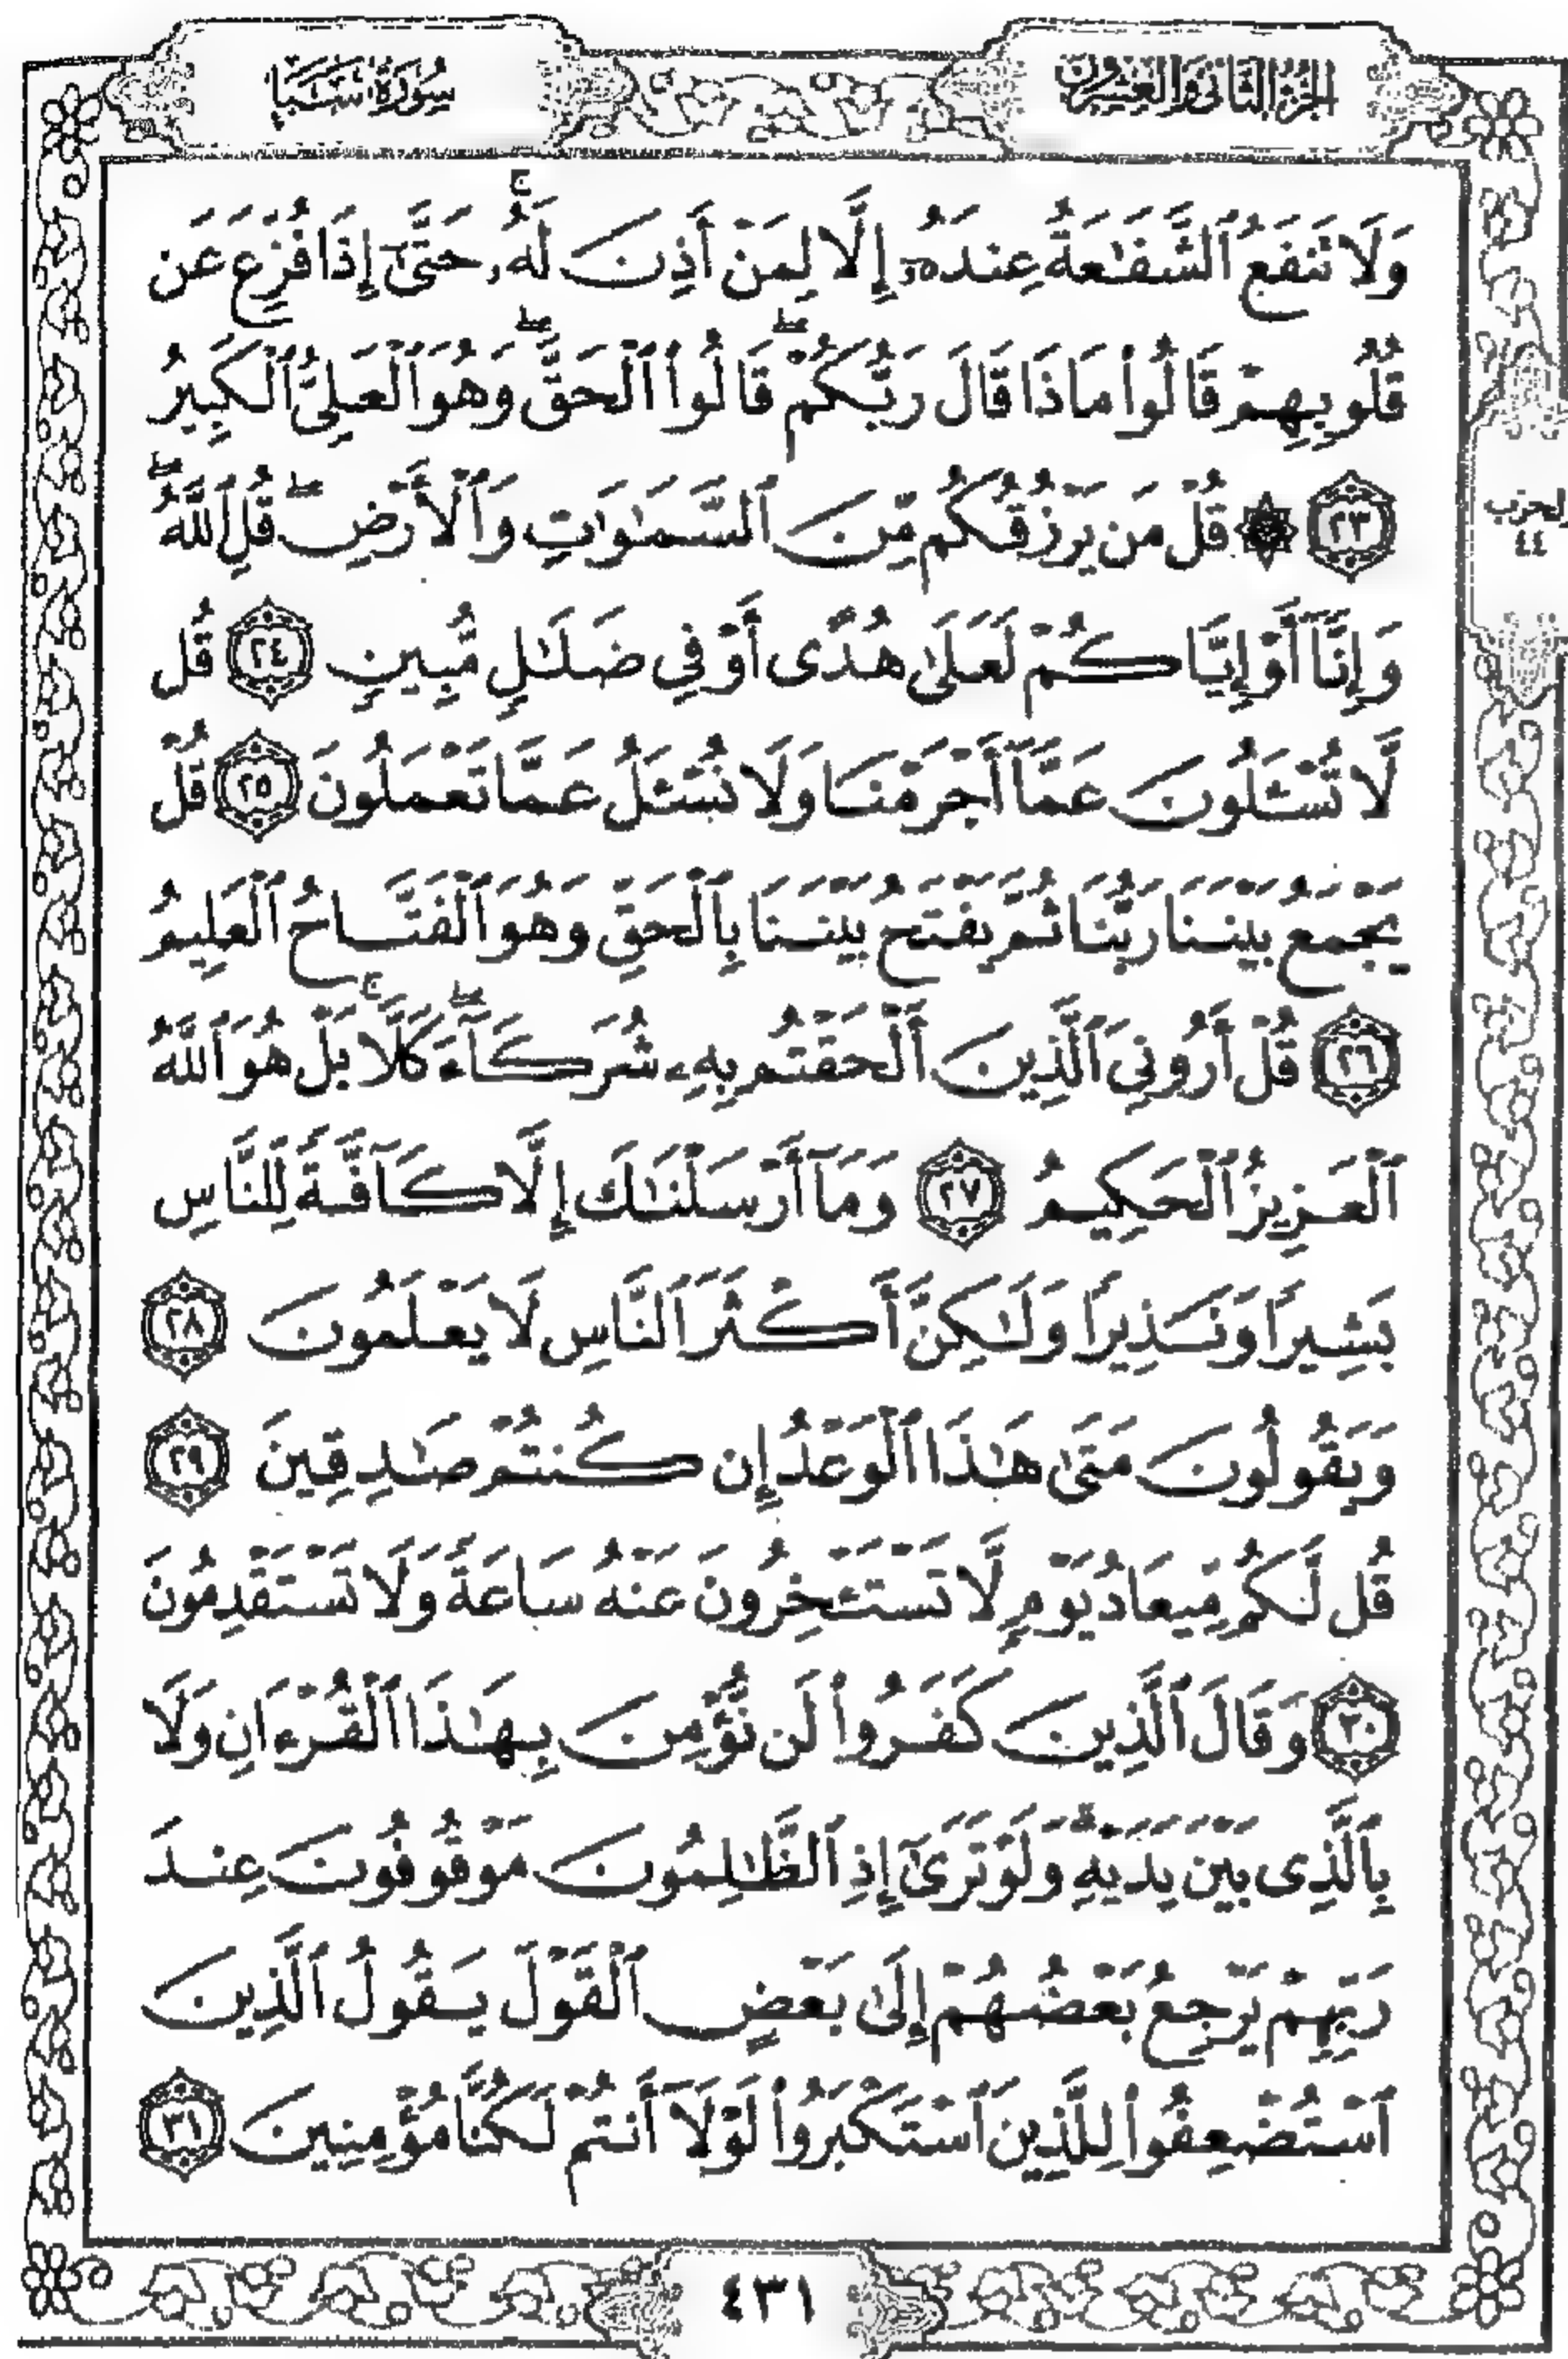 الجزء الثاني والعشرون
سُورَةُ سَبَإٍ
وَلَا تَنفَعُ ٱلشَّفَٰعَةُ عِندَهُۥٓ إِلَّا لِمَنْ أَذِنَ لَهُۥۚ حَتَّىٰٓ إِذَا فُزِّعَ عَن
قُلُوبِهِمْ قَالُوا۟ مَاذَا قَالَ رَبُّكُمْۖ قَالُوا۟ ٱلْحَقَّۖ وَهُوَ ٱلْعَلِىُّ ٱلْكَبِيرُ
٢٣ ۞ قُلْ مَن يَرْزُقُكُم مِّنَ ٱلسَّمَٰوَٰتِ وَٱلْأَرْضِۖ قُلِ ٱللَّهُۖ
وَإِنَّآ أَوْ إِيَّاكُمْ لَعَلَىٰ هُدًى أَوْ فِى ضَلَٰلٍ مُّبِينٍ ٢٤ قُل
لَّا تُسْـَٔلُونَ عَمَّآ أَجْرَمْنَا وَلَا نُسْـَٔلُ عَمَّا تَعْمَلُونَ ٢٥ قُلْ
يَجْمَعُ بَيْنَنَا رَبُّنَا ثُمَّ يَفْتَحُ بَيْنَنَا بِٱلْحَقِّ وَهُوَ ٱلْفَتَّاحُ ٱلْعَلِيمُ
٢٦ قُلْ أَرُونِىَ ٱلَّذِينَ أَلْحَقْتُم بِهِۦ شُرَكَآءَۖ كَلَّاۚ بَلْ هُوَ ٱللَّهُ
ٱلْعَزِيزُ ٱلْحَكِيمُ ٢٧ وَمَآ أَرْسَلْنَٰكَ إِلَّا كَآفَّةً لِّلنَّاسِ
بَشِيرًا وَنَذِيرًا وَلَٰكِنَّ أَكْثَرَ ٱلنَّاسِ لَا يَعْلَمُونَ ٢٨
وَيَقُولُونَ مَتَىٰ هَٰذَا ٱلْوَعْدُ إِن كُنتُمْ صَٰدِقِينَ ٢٩
قُل لَّكُم مِّيعَادُ يَوْمٍ لَّا تَسْتَـْٔخِرُونَ عَنْهُ سَاعَةً وَلَا تَسْتَقْدِمُونَ
٣٠ وَقَالَ ٱلَّذِينَ كَفَرُوا۟ لَن نُّؤْمِنَ بِهَٰذَا ٱلْقُرْءَانِ وَلَا
بِٱلَّذِى بَيْنَ يَدَيْهِۗ وَلَوْ تَرَىٰٓ إِذِ ٱلظَّٰلِمُونَ مَوْقُوفُونَ عِندَ
رَبِّهِمْ يَرْجِعُ بَعْضُهُمْ إِلَىٰ بَعْضٍ ٱلْقَوْلَ يَقُولُ ٱلَّذِينَ
ٱسْتُضْعِفُوا۟ لِلَّذِينَ ٱسْتَكْبَرُوا۟ لَوْلَآ أَنتُمْ لَكُنَّا مُؤْمِنِينَ ٣١
الحزب
٤٤
٤٣١